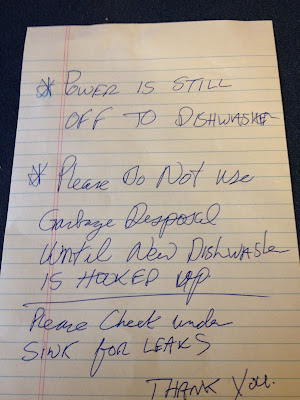 * Power is still
off to Dishwasher
* Please Do Not use
Garbage Disposal
Until New Dishwasher
is Hooked up
Please Check under
Sink for Leaks
Thank You.